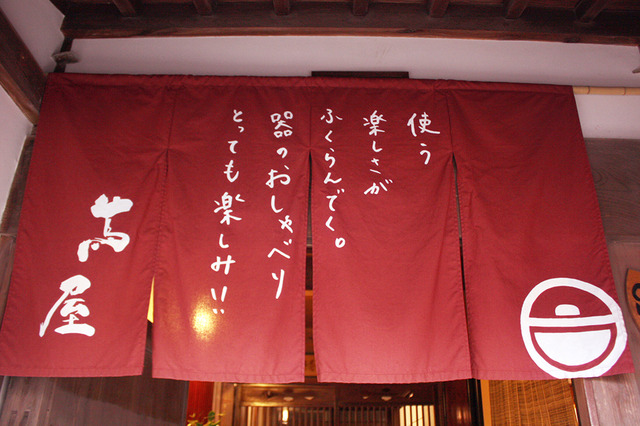 使う
楽しさが
ふくらんでく。
器のおしゃべり
とっても楽しみ!!
蔦屋